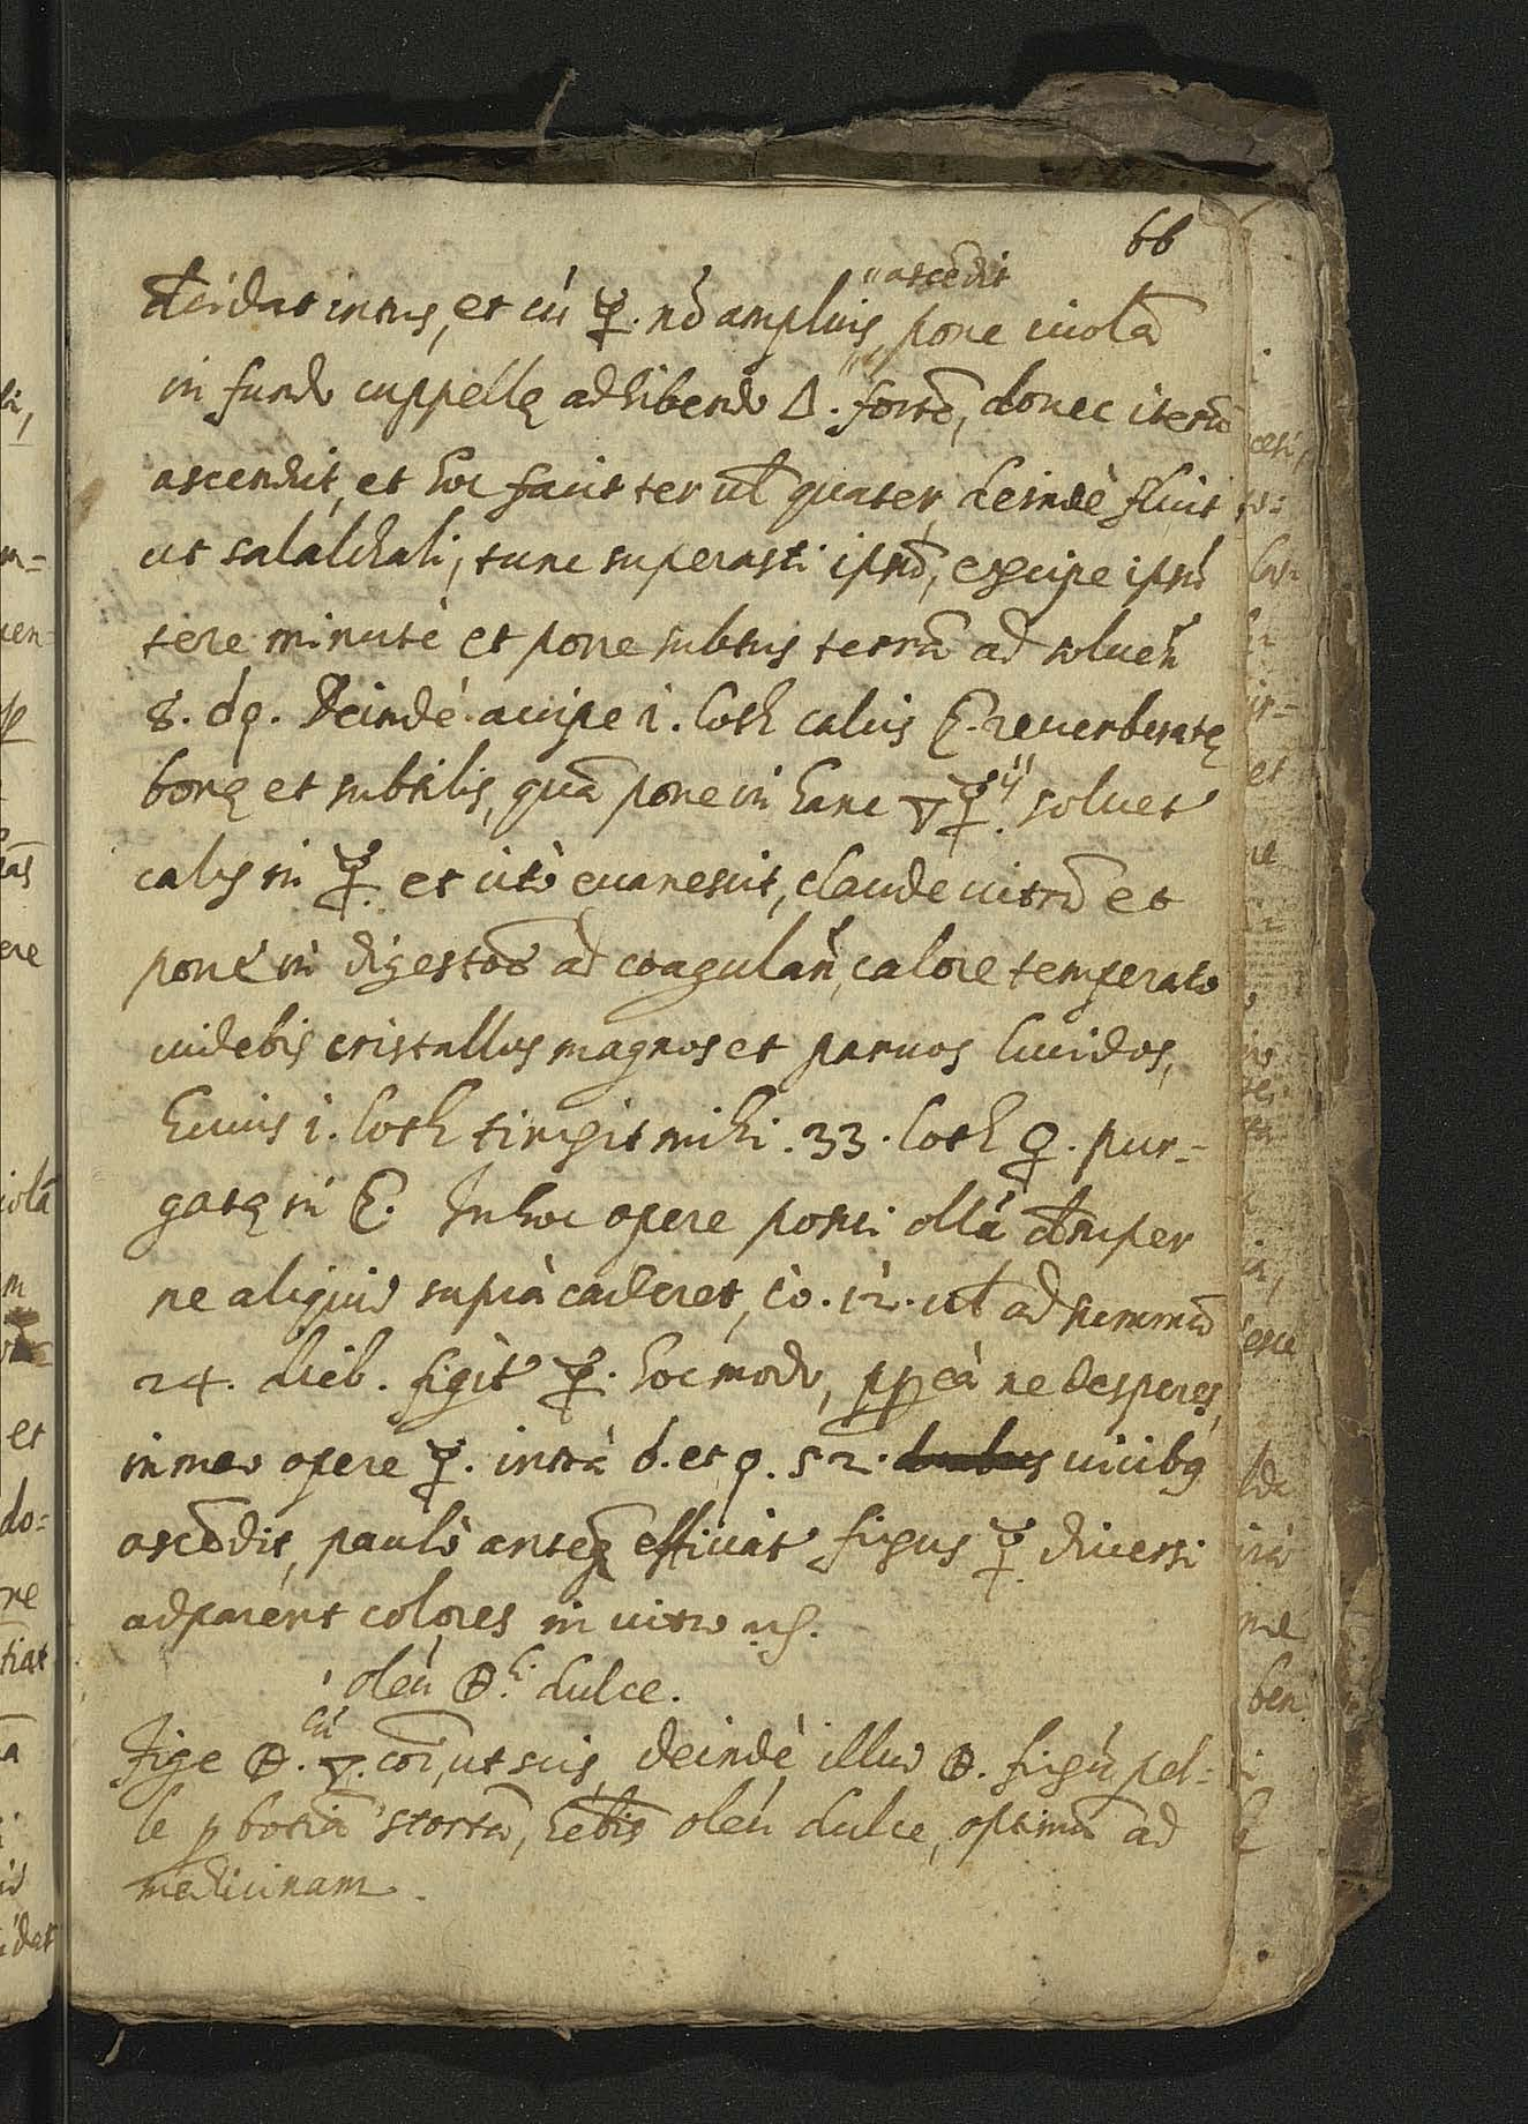 66
"ascēdit
cidat intus, et cū ☿. nō amplius, pone iuolā
in fundo cuppellę adhibendo △. fortē, donec iterū
ascendit, et hoc facit ter ul quater, deindè fluit
ut salalchali, tunc superasti ipsū, excipe ipsū
tere minutè et pone subtus terrā ad soluen̄
8. d9. Deindè accipe 1. loth calcis reuerberatę
bonę et subtilis, quā pone in hanc ▽☿ soluet
calx in ☿. et citò euanescit, claude uitrū et
pone in digestoē ad coagulan̄, calore temperato
uidebis cristallos magnos et paruos lucidos,
huius 1. loth tingit mihi .33. loth ♀. pur-
gatę in Inhoc opere posui ollā desuper
ne aliquid suprà caderet, 12. ul ad summū
24. dieb. figit ☿. hoc modo, ppeà ne desperes,
in meo opere ☿. intrà 6. et 9. 52. uicibꝫ
ascēdit, paulò anteꝗ efficiat fixus ☿ diuersi
adparent colores in uitro
oleū dulce.
cū
Fige ▽. coī, ut scis, deindè illud fixū pel-
le p botiā stortā, hēbis oleū dulce, optimū ad
medicinam.